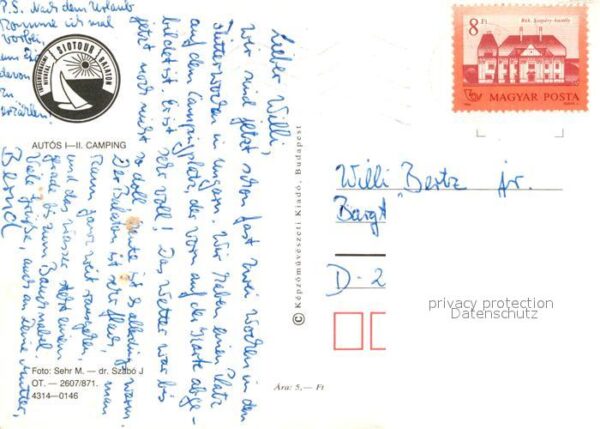 P.S. Nach dem Urlaub
komme ich mal
vorbei,
um Dir
davon
zu
erzählen.
SIOTOUR
BALATON
AUTÓS I—II. CAMPING
Lieber Willi,
wir sind jetzt schon fast zwei Wochen in den
Flitterwochen in Ungarn. Wir haben einen Platz
auf dem Campingplatz, der vorn auf der Karte abge-
bildet ist. Er ist sehr voll! Das Wetter war bis
jetzt noch nicht so doll, heute ist es allerdings warm.
Der Balaton ist sehr flach, man
kann ganz weit rausgehen,
und das Wasser steht einem
grade bis zum Bauchnabel.
Viele Grüße, auch an Deine Mutter,
Bernd
Foto: Sehr M. — dr. Szabó J
OT. — 2607/871.
4314—0146
© Képzőművészeti Kiadó, Budapest
Ára: 5,— Ft
8 Ft
MAGYAR POSTA
Willi Bertz jr.
Bargt
D-2
privacy protection
Datenschutz